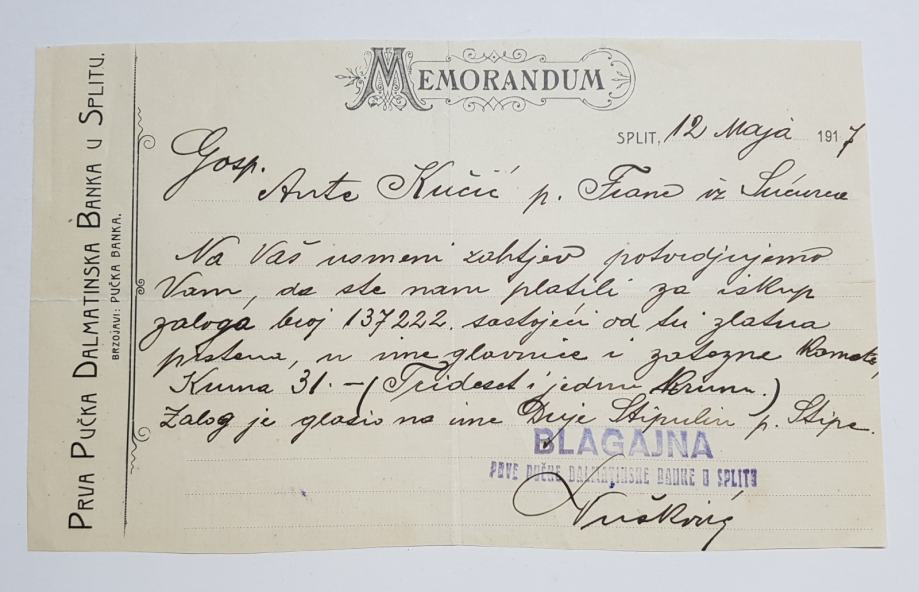 PRVA PUČKA DALMATINSKA BANKA U SPLITU.
BRZOJAVI: PUČKA BANKA.
MEMORANDUM
SPLIT, 12 Maja 1917
Gosp.
Ante Kučić p. Frane iz Sućurca
Na Vaš usmeni zahtjev potvrdjujemo
Vam, da ste nam platili za iskup
zaloga broj 137222. sastojeći od tri zlatna
prstena, u ime glavnice i zatezne kamate,
Kruna 31.- (Trideset i jednu krunu.)
Zalog je glasio na ime Duje Stipulin p. Stipe.
BLAGAJNA
PRVE PUČKE DALMATINSKE BANKE U SPLITU